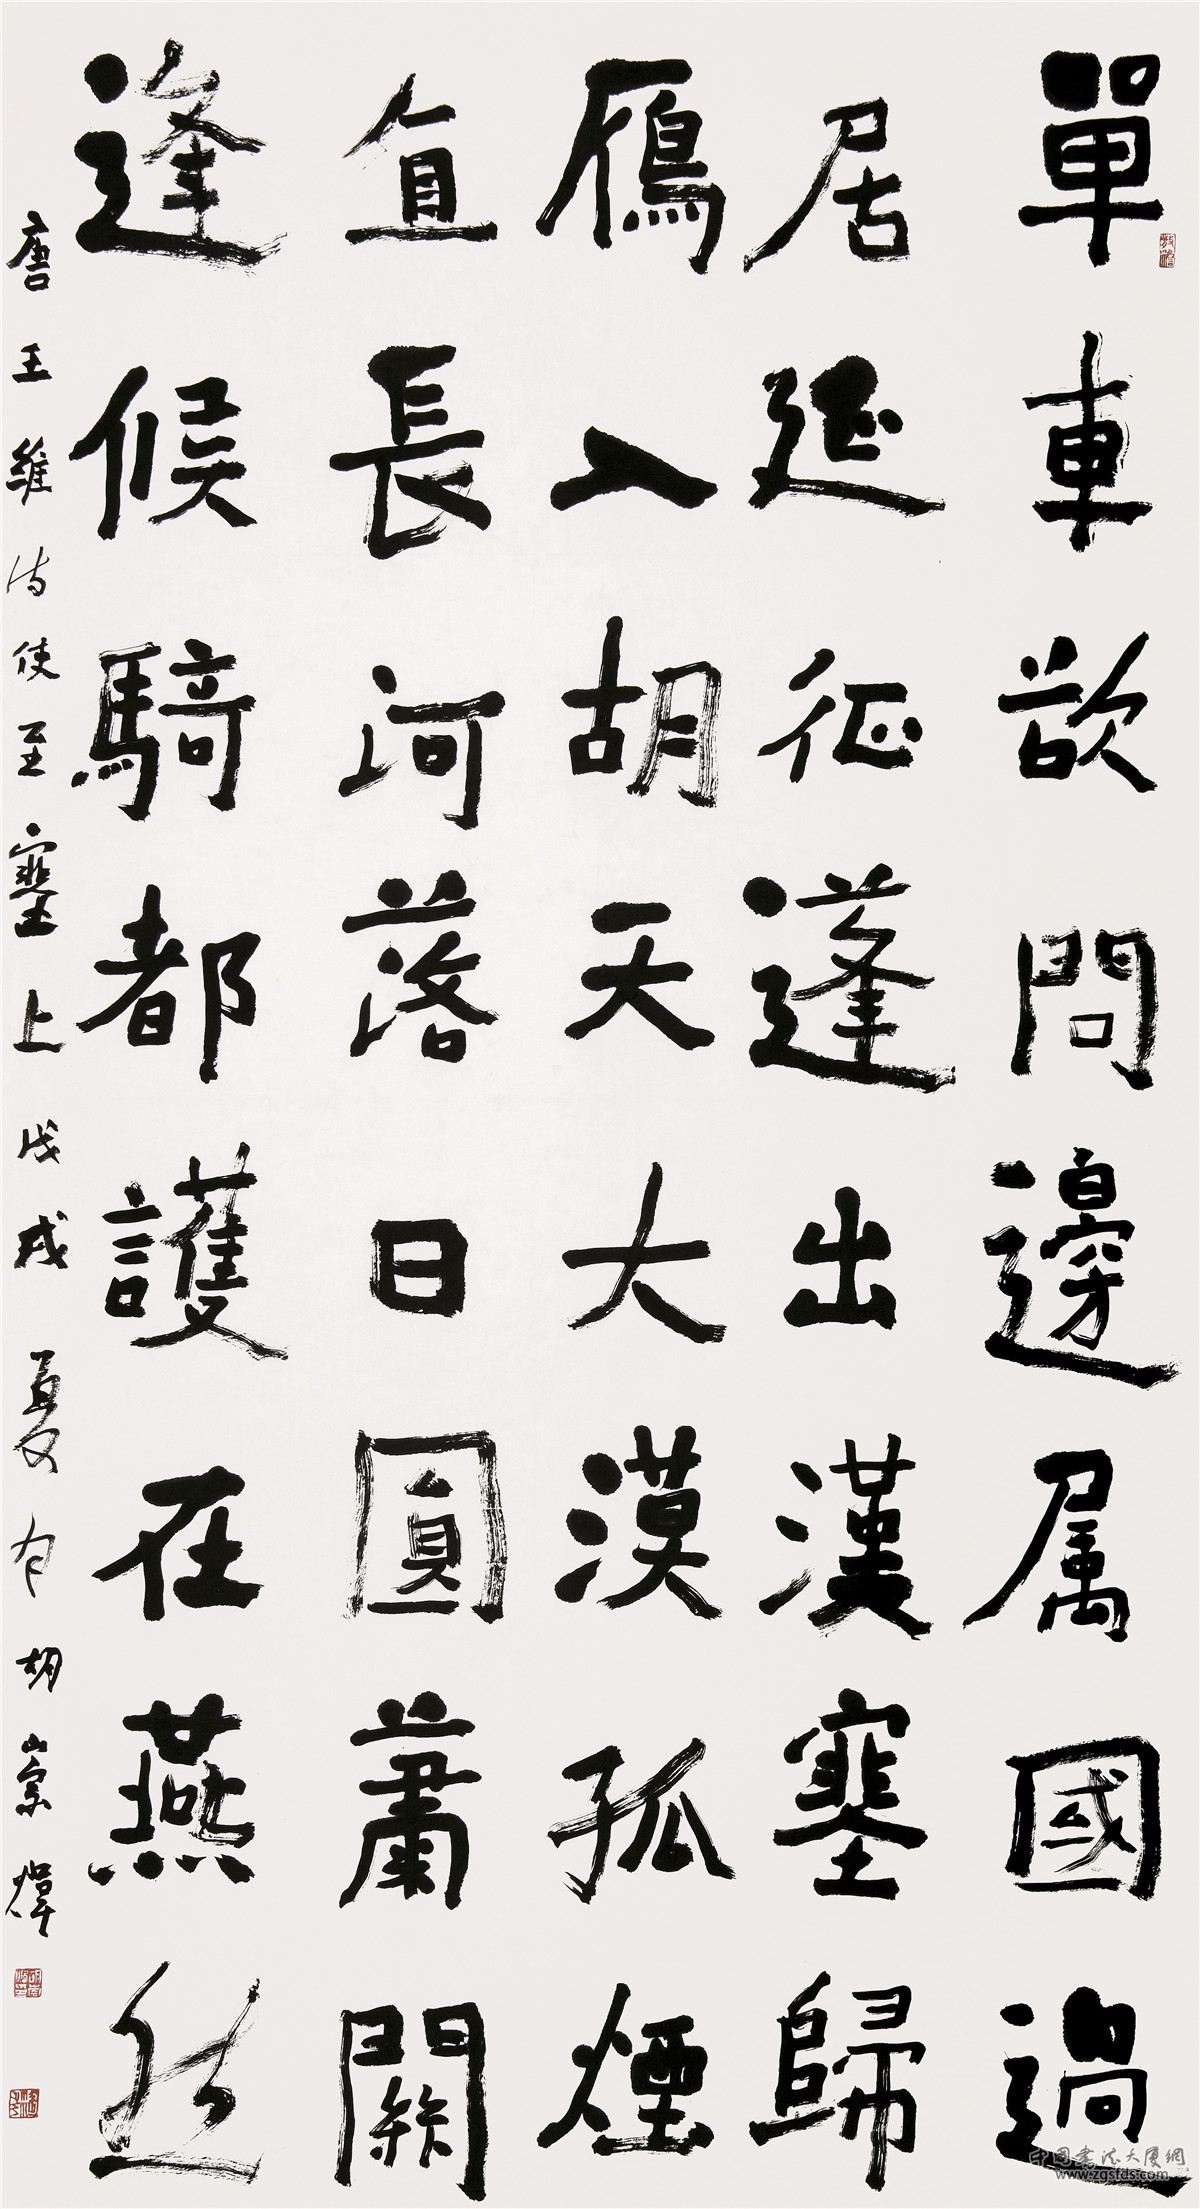 單車欲問邊属國過
居延征蓬出漢塞歸
鴈入胡天大漠孤煙
直長河落日圓蕭關
逢候騎都護在燕然
唐王維詩使至塞上戊戌夏月胡崇煒
中国書法大厦網
www.zgsfds.com